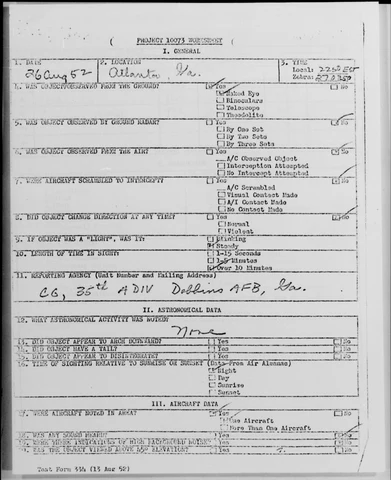 PROJECT 10073 WORKSHEET
I. GENERAL
1. DATE
2. LOCATION
3. TIME
26 Aug 52
Atlanta, Ga.
Local:
Zebra:
4. WAS OBJECT OBSERVED FROM THE GROUND?
Yes No
Naked Eye
Binoculars
Telescope
Theodolite
5. WAS OBJECT OBSERVED BY GROUND RADAR?
Yes No
By One Set
By Two Sets
By Three Sets
6. WAS OBJECT OBSERVED FROM THE AIR?
Yes No
A/C Observed Object
Interception Attempted
No Intercept Attempted
7. WERE AIRCRAFT SCRAMBLED TO INTERCEPT?
Yes No
A/C Scrambled
Visual Contact Made
A/I Contact Made
No Contact Made
8. DID OBJECT CHANGE DIRECTION AT ANY TIME?
Yes No
Normal
Violent
9. IF OBJECT WAS A "LIGHT", WAS IT:
Blinking
Steady
10. LENGTH OF TIME IN SIGHT:
1-15 Seconds
1-5 Minutes
Over 10 Minutes
11. REPORTING AGENCY (Unit Number and Mailing Address)
CG, 35th A DIV Dobbins AFB, Ga.
II. ASTRONOMICAL DATA
12. WHAT ASTRONOMICAL ACTIVITY WAS NOTED?
None
13. DID OBJECT APPEAR TO ARCH DOWNWARD?
Yes No
14. DID OBJECT HAVE A TAIL?
Yes No
15. DID OBJECT APPEAR TO DISINTEGRATE?
Yes No
16. TIME OF SIGHTING RELATIVE TO SUNRISE OR SUNSET (Data From Air Almanac)
Night
Day
Sunrise
Sunset
III. AIRCRAFT DATA
17. WERE AIRCRAFT NOTED IN AREA?
Yes No
One Aircraft
More Than One Aircraft
18. WAS ANY SOUND HEARD?
Yes No
19. WERE THERE INDICATIONS OF HIGH BACKGROUND NOISE?
Yes No
WAS THE OBJECT VIEWED ABOVE 45° ELEVATION?
Yes ?. No
Test Form 334 (15 Aug 52)